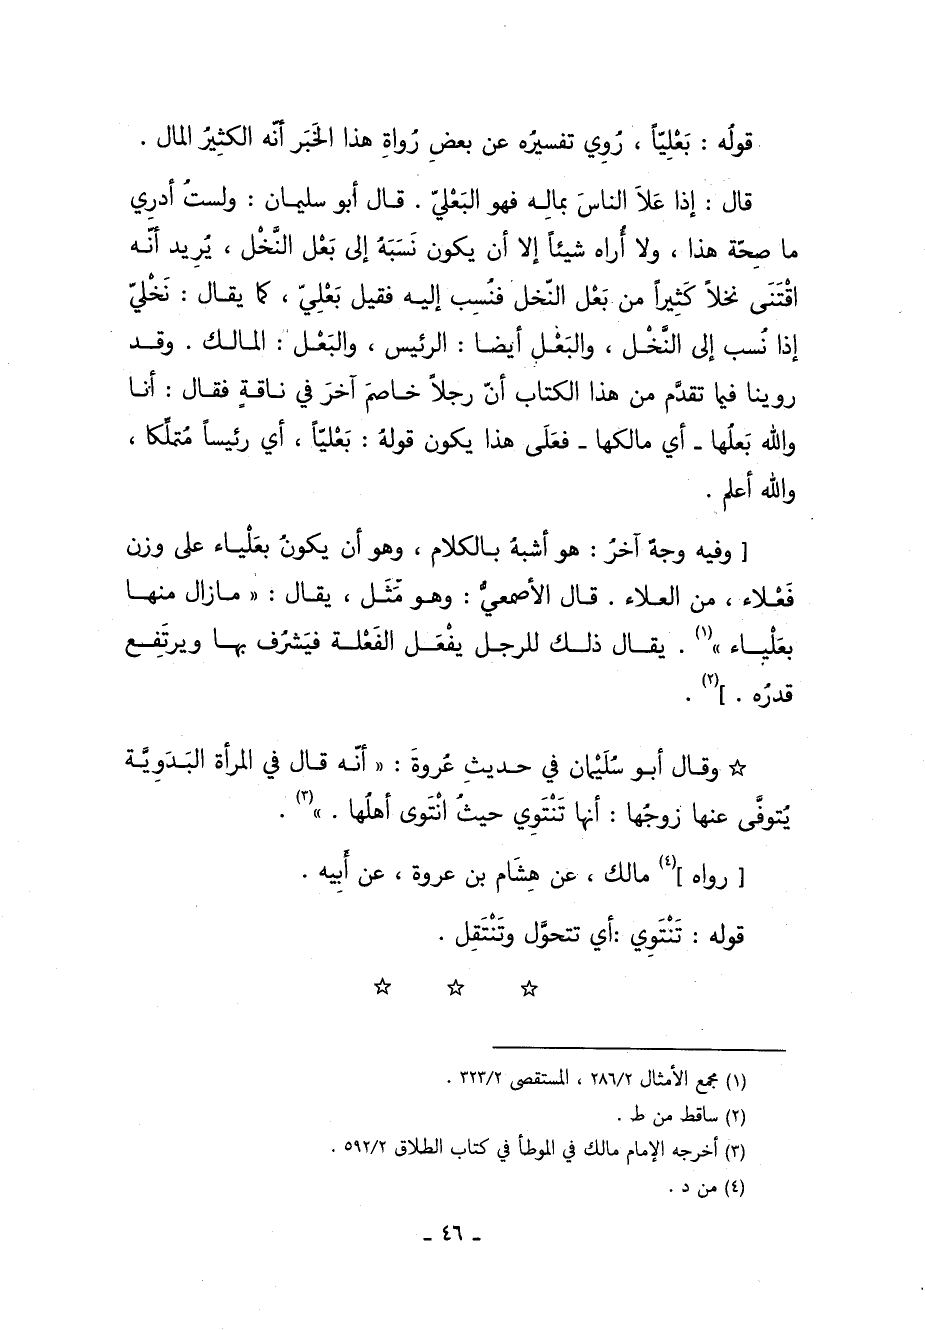 قولُه : بَعْليّاً ، رُوِي تفسيرُه عن بعضِ رُواةِ هذا الخَبَر أنّه الكثيرُ المال .
قال : إذا عَلاَ الناسَ بماله فهو البَعْليّ . قال أبو سليمان : ولستُ أدرِي
ما صِحّة هذا ، ولا أُراه شيئاً إلا أن يكون نَسَبَهُ إلى بَعْل النَّخْل ، يُرِيد أنّه
اقْتَنَى نخلاً كَثِيراً من بَعْل النّخل فنُسِب إليه فقيل بَعْلِيّ ، كما يقال : نَخْليّ
إذا نُسب إلى النَّخْل ، والبَعْل أيضا : الرئيس ، والبَعْل : المالك . وقد
روينا فيما تقدَّم من هذا الكتاب أنّ رجلاً خاصَم آخرَ في ناقةٍ فقال : أنا
والله بَعلُها ـ أي مالكها ـ فعَلَى هذا يكون قولهُ : بَعْليّاً ، أي رئيساً مُتملِّكا ،
والله أعلم .
[ وفيه وجهٌ آخرُ : هو أشبهُ بالكلام ، وهو أن يكونُ بعَلْياء على وزن
فَعْلاء ، من العلاء . قال الأصمعيُّ : وهو مَثَل ، يقال : « مازال منها
بعَلْياء »(١) . يقال ذلك للرجل يفْعَل الفَعْلة فيَشرُف بها ويرتَفِع
قدرُه . ](٢) .
☆ وقال أبو سُلَيْمان في حديثِ عُروةَ : « أنّه قال في المرأة البَدَوِيَّة
يُتوفَّى عنها زوجُها : أنها تَنْتَوِي حيثُ انْتَوى أهلُها . »(٣) .
[ رواه ](٤) مالك ، عن هِشَام بن عروة ، عن أَبِيه .
قوله : تَنْتَوِي :أي تتحوَّل وتَنْتَقِل .
☆ ☆ ☆
(١) مجمع الأمثال ٢٨٦/٢ ، المستقصى ٣٢٣/٢ .
(٢) ساقط من ط .
(٣) أخرجه الإمام مالك في الموطأ في كتاب الطلاق ٥٩٢/٢ .
(٤) من د .
ـ ٤٦ ـ